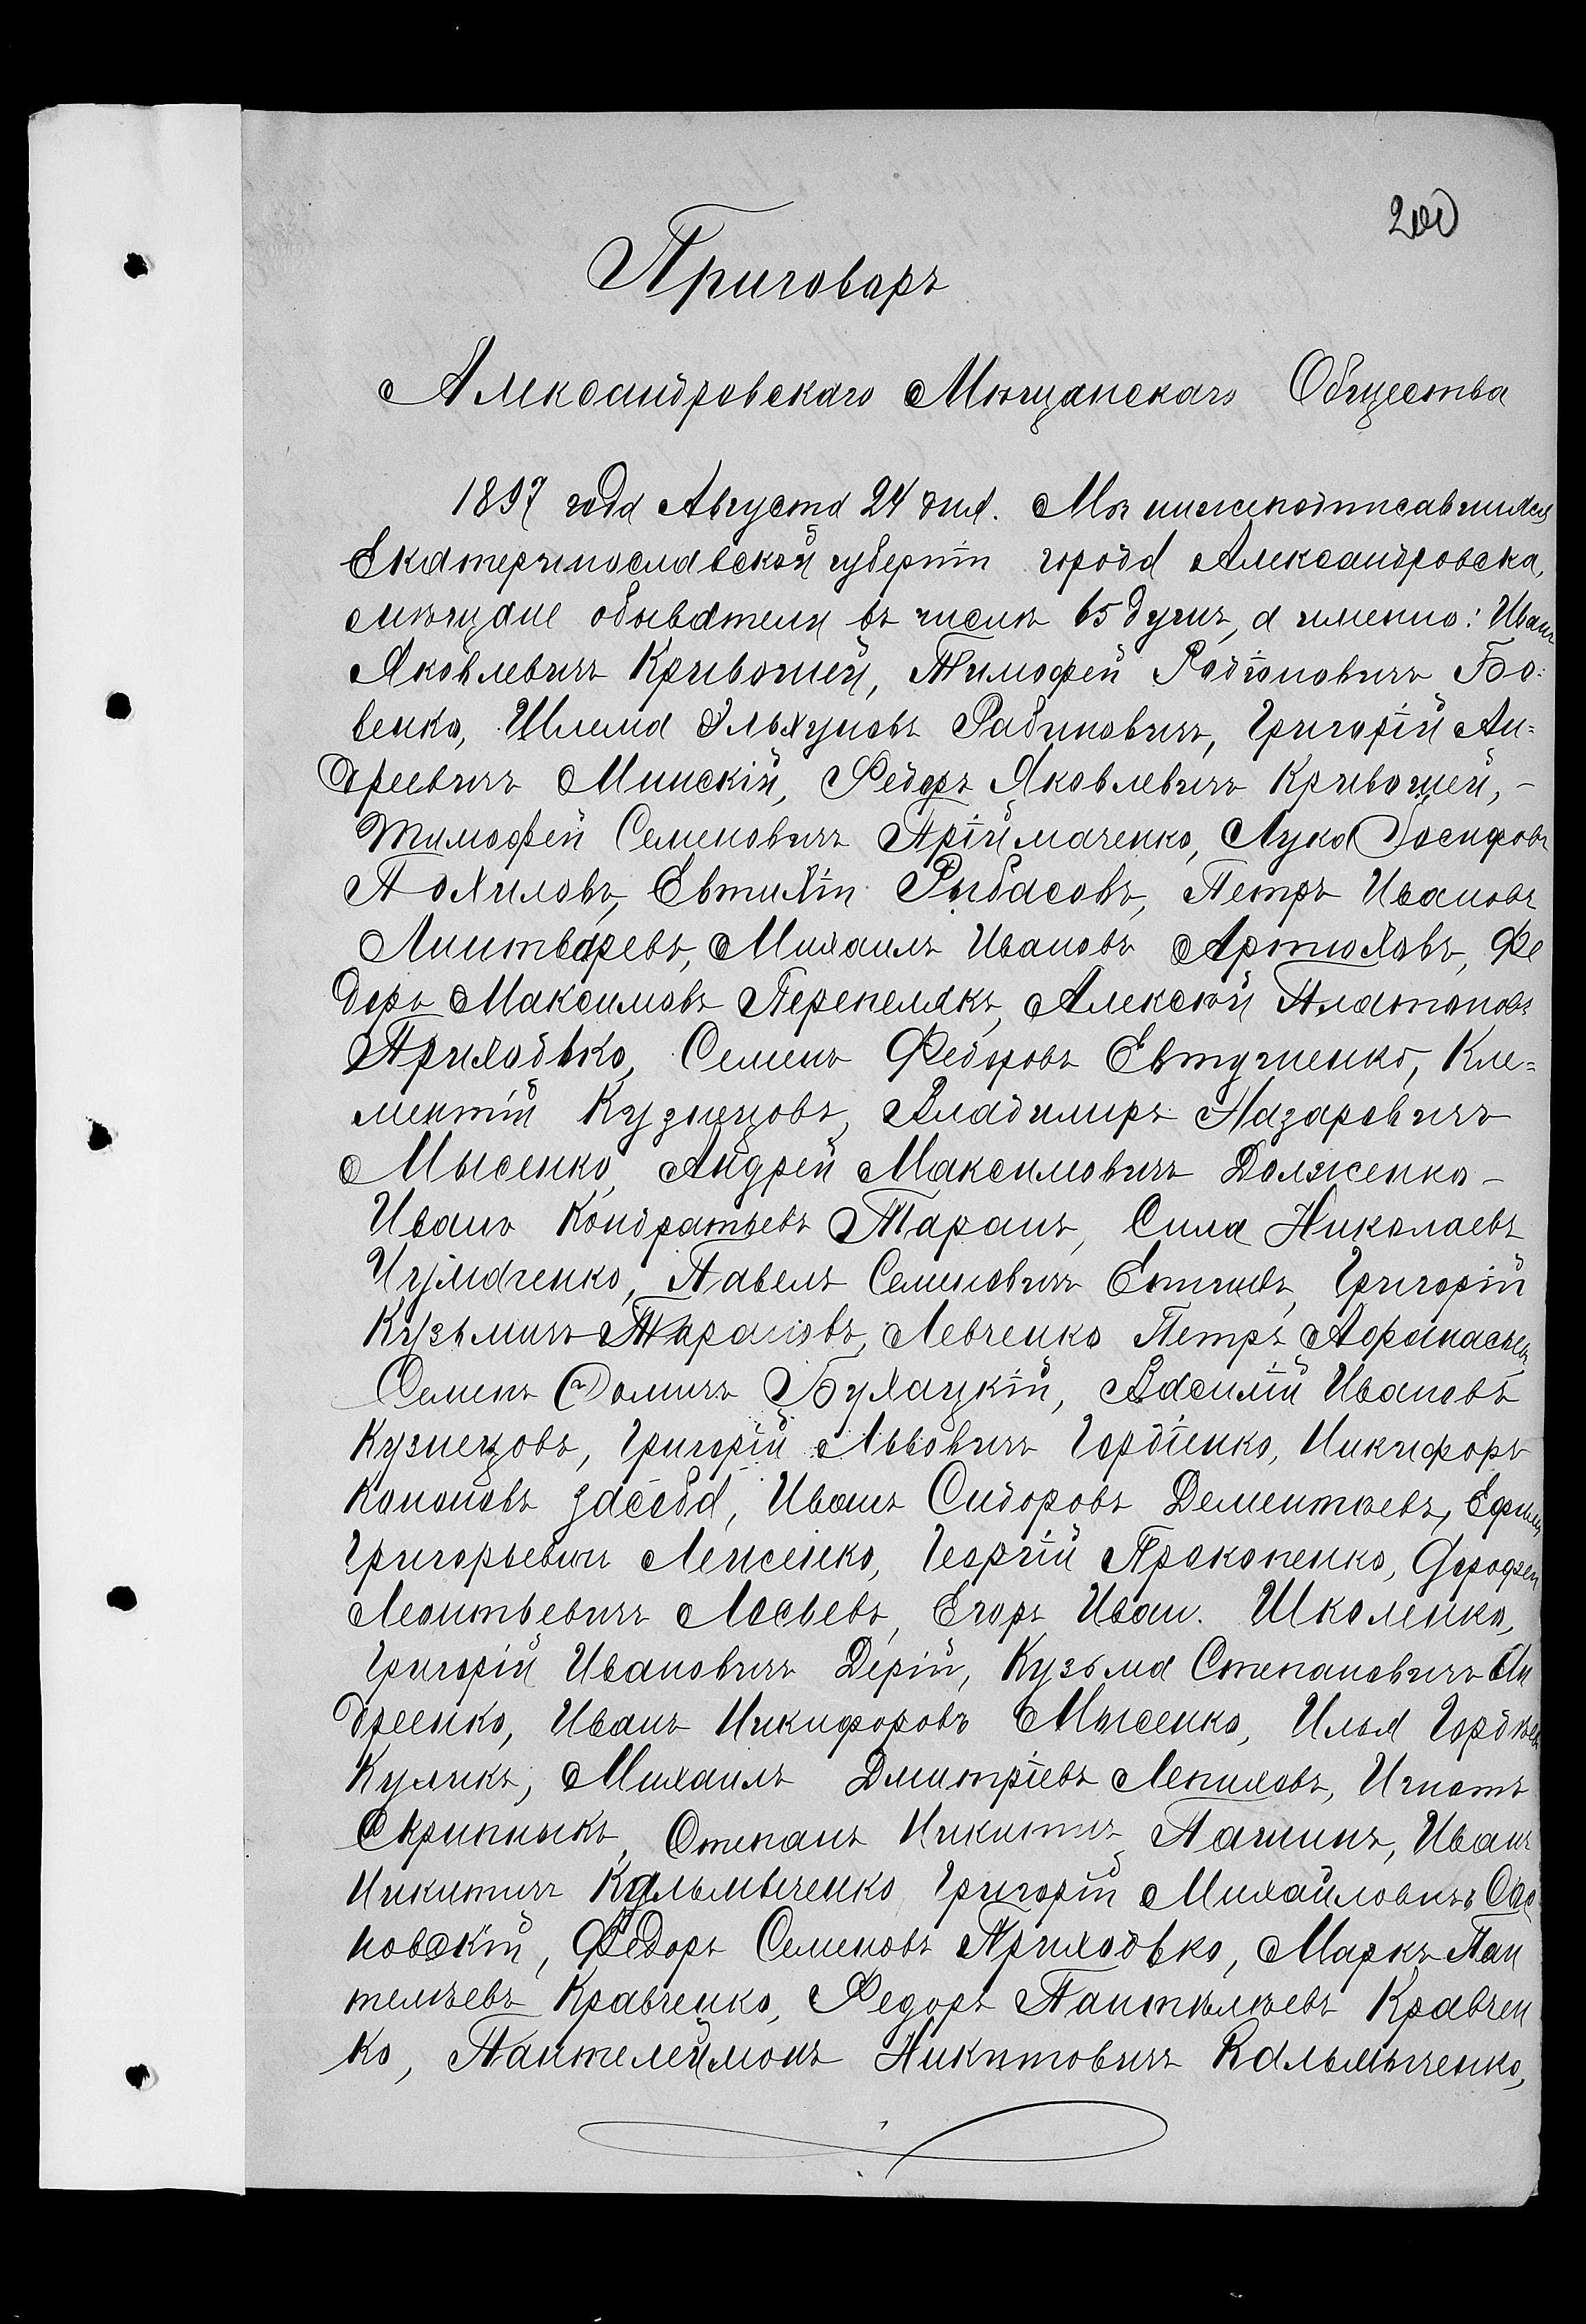 200
Приговоръ
Александровскаго Мѣщанскаго Общества
1897 года Августа 24 дня. Мы нижеподписавшиеся
Екатеринославской губерніи города Александровска,
мѣщане обыватели въ числѣ 65 душъ, а именно: Иванъ
Яковлевичъ Кривошей, Тимофей Родіоновичъ Бо-
венко, Шлема Эльхуновъ Рабиновичъ, Григорій Ан-
дреевичъ Минскій, Федоръ Яковлевичъ Кривошей, -
Тимофей Семеновичъ Пріймаченко, Лука Іосифовъ
Похиловъ, Евтихій Рыбасовъ, Петръ Ивановъ
Линтваревъ, Михаилъ Ивановъ Артюховъ, Фе
доръ Максимовъ Перепелякъ, Алексѣй Платоновъ
Приходько, Семенъ Федоровъ Евтушенко, Кле-
ментій Кузнецовъ, Владимиръ Назаровичъ
Мысенко, Андрей Максимовичъ Долженко -
Иванъ Кондратьевъ Таранъ, Сила Николаевъ
Чумаченко, Павелъ Семеновичъ Григорій
Кузьмичъ Тарановъ, Левченко Петръ Афанасьев
Семенъ Фомичъ Бухацкій, Василій Ивановъ
Кузнецовъ, Григорій Львовичъ Гордіенко, Никифоръ
Кононовъ Засоба, Иванъ Сидоровъ Дементьевъ, Ефимъ
Григорьевичъ Георгій Прокопенко,
Леонтьевичъ Лосьевъ, Егоръ Иван. Школенко,
Григорій Ивановичъ Дерій, Кузьма Степановичъ Ан
дреенко, Иванъ Никифоровъ Мысенко, Илья Гордѣевъ
Куликъ, Михаилъ Дмитріевъ Лепиховъ, Игнатъ
Скрипныкъ, Степанъ Никитичъ Пашинъ, Иванъ
Никитичъ Кальмыченко Григорій Михайловичъ Сос
новскій, Федоръ Семеновъ Приходько, Маркъ Пан
телѣевъ Кравченко, Федоръ Пантѣлѣевъ Кравчен
ко, Пантелеймонъ Никитовичъ Кальмыченко,